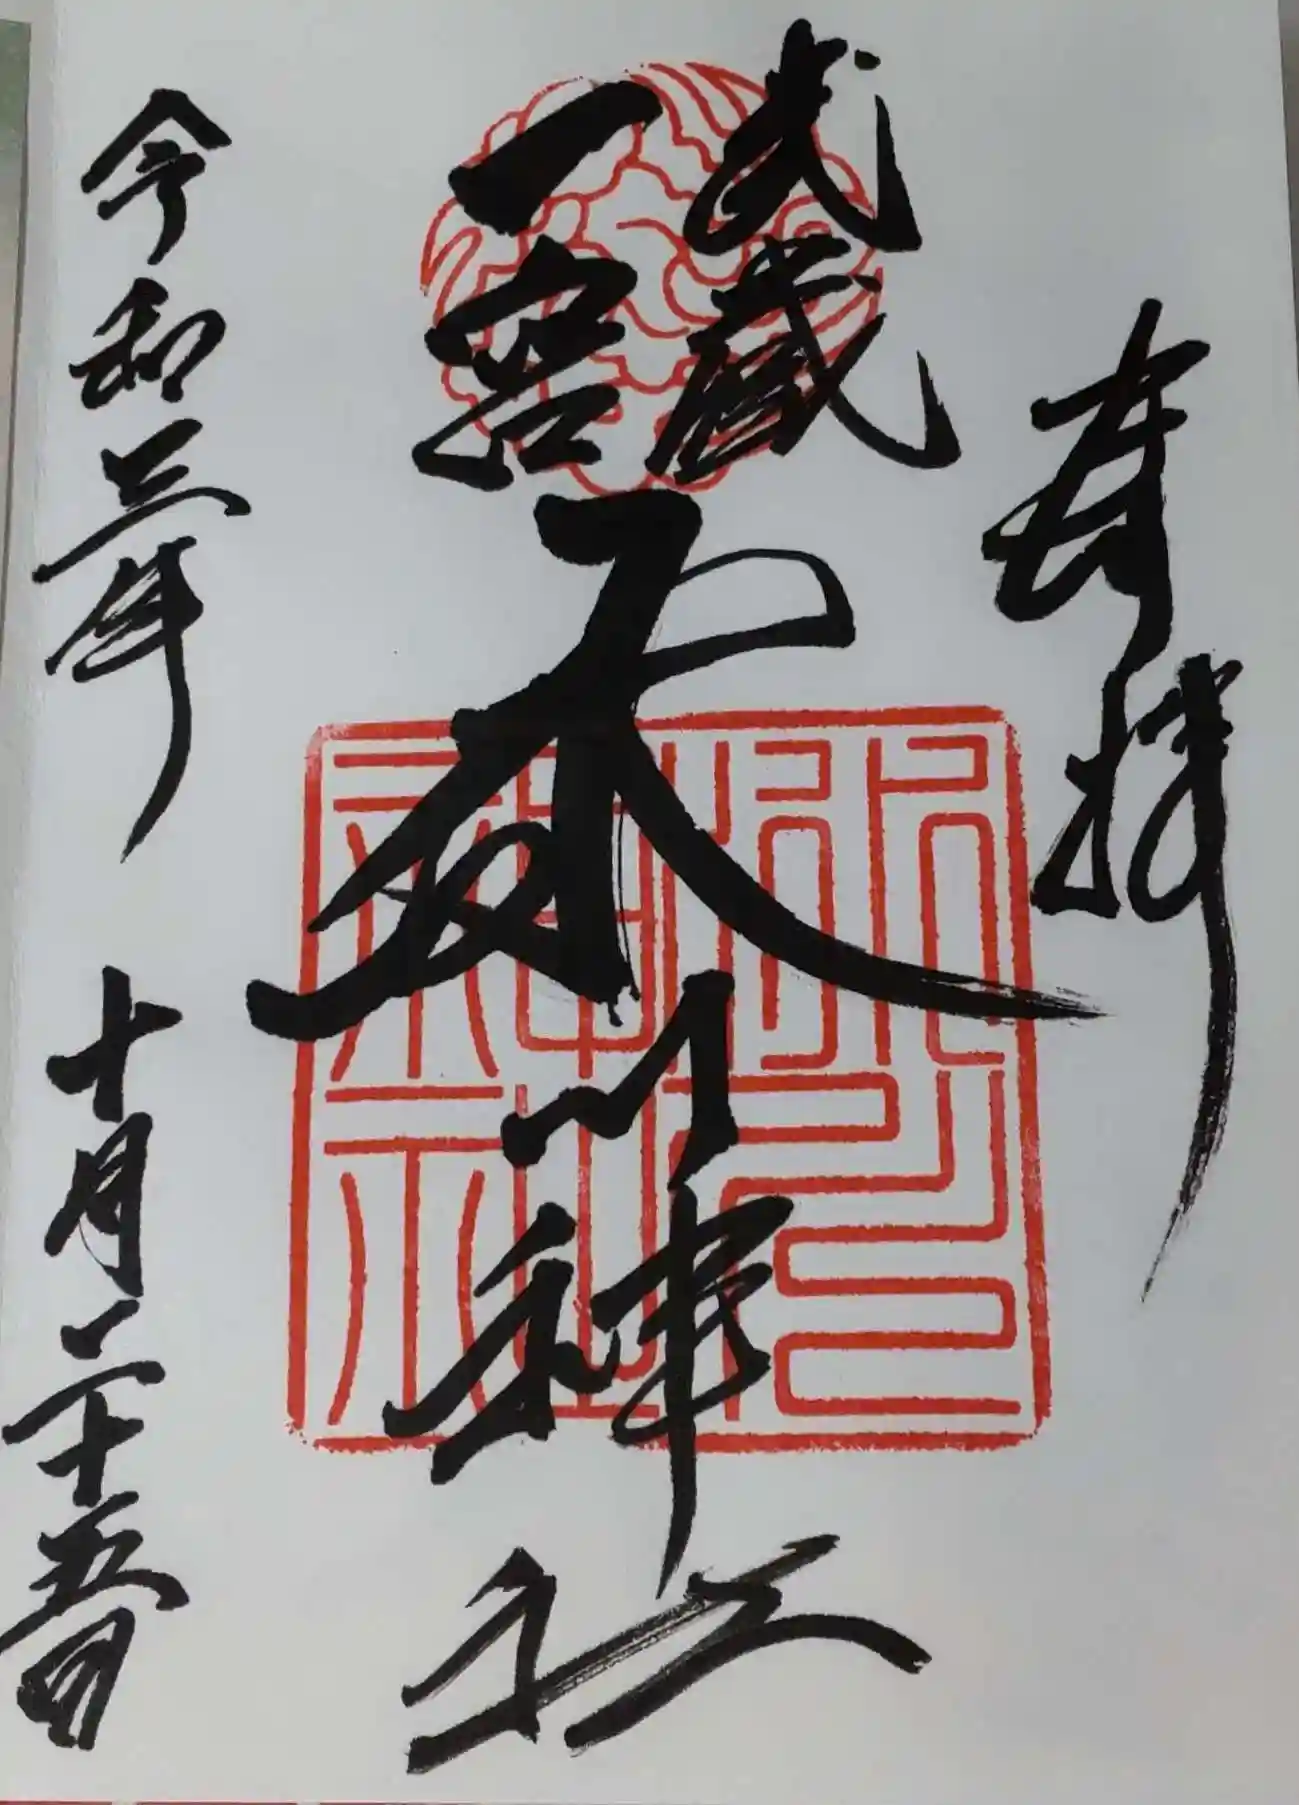 奉拝
武蔵
一宮
氷川神社
令和三年 十月二十五日
氷川神社